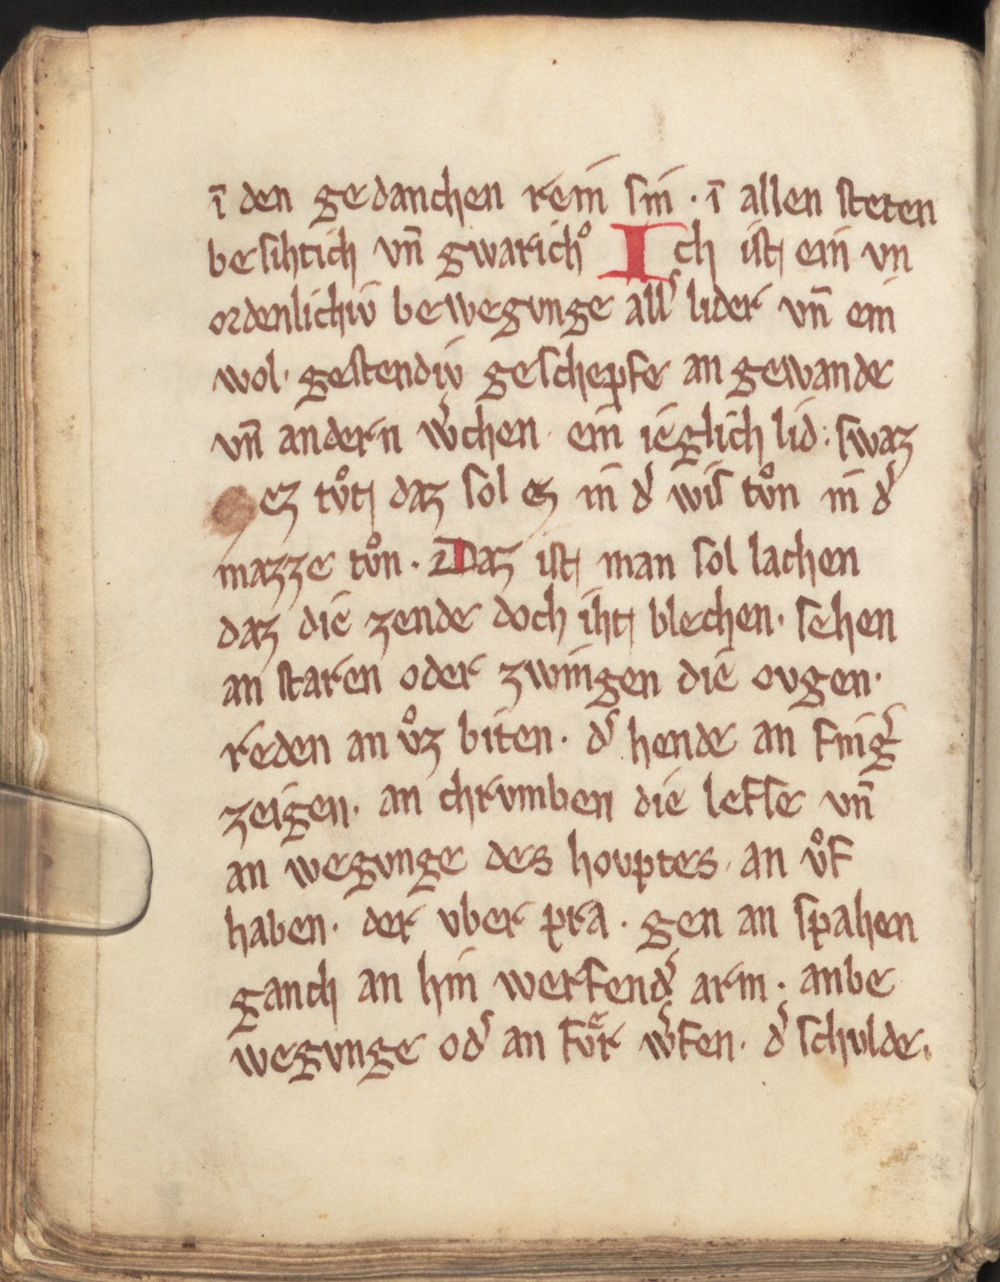 ī den gedanchen rein sin · ī allen steten
besihtich vn̄ gwarichͦ Ich ist ein vn
ordenlichiv bewegvnge all᷎ lider vn̄ ein
wol · gestendiv geschepfe an gewande
vn̄ andern w᷎chen · ein ieglich lid : swaz
ez tvͦt daz sol ez in d᷎ wis tvͦn in d᷎
mazze tvͦn · Daz ist man sol lachen
daz die zende doch iht blechen · sehen
an staren oder zwingen die ovgen ·
reden an vͦz biten · d᷎ hende an fing᷎
zeigen · an chrvmben die lefse vn̄
an wegvnge des hovptes · an vͦf
haben · der vber pra · gen an spahen
ganch an hin werfend᷎ arm · an be
wegvnge od᷎ an fvͤr w᷎fen · d᷎ schvlder ·